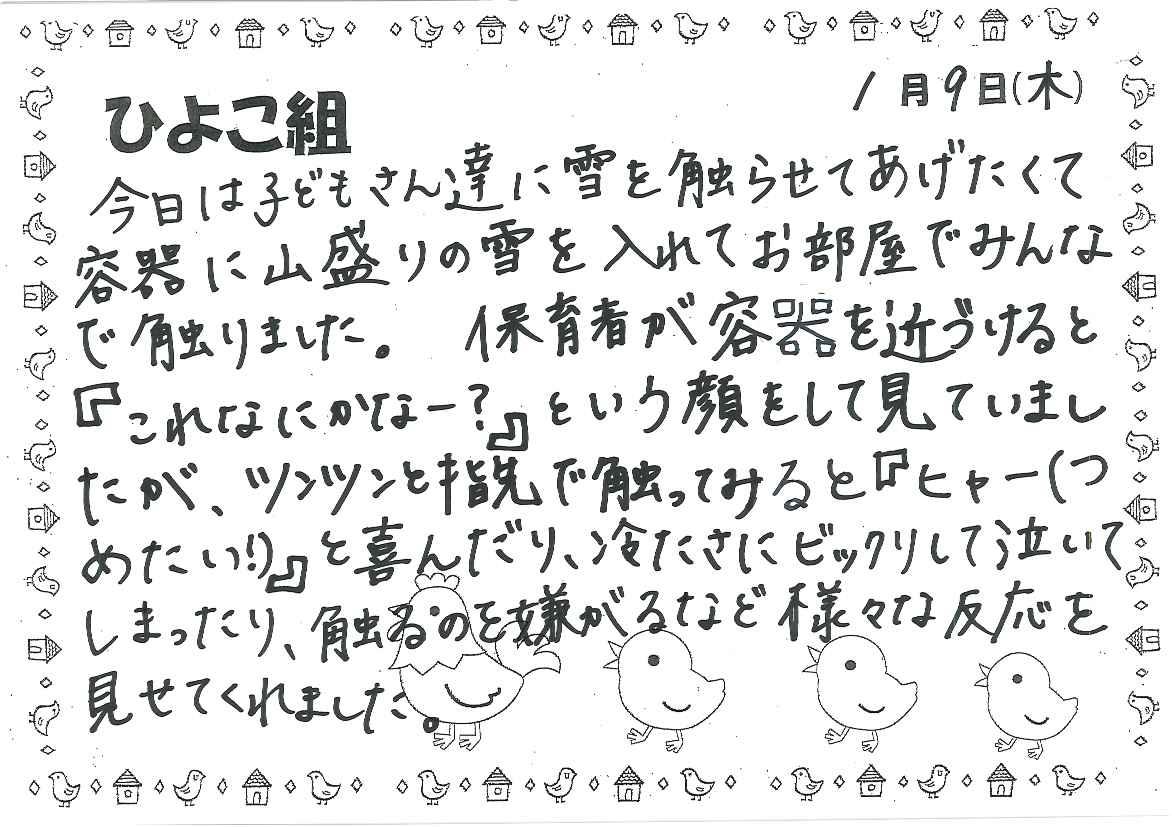 1月9日(木)
ひよこ組
今日は子どもさん達に雪を触らせてあげたくて
容器に山盛りの雪を入れてお部屋でみんな
で触りました。 保育者が容器を近づけると
『これなにかなー?』という顔をして見ていまし
たが、ツンツンと指先で触ってみると『ヒャー(つ
めたい!)』と喜んだり、冷たさにビックリして泣いて
しまったり、触るのを嫌がるなど様々な反応を
見せてくれました。